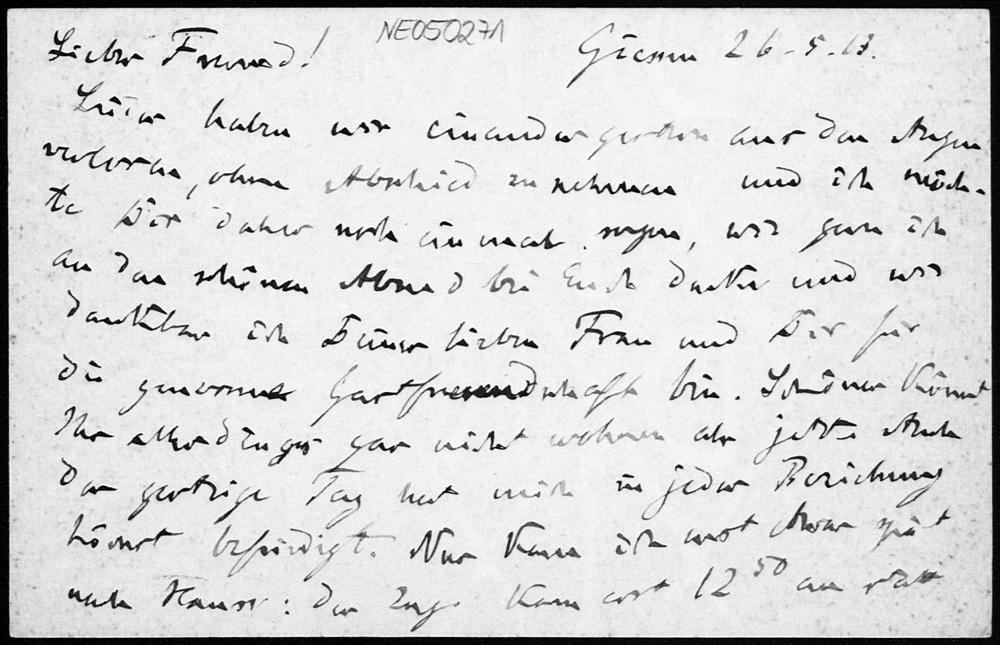 NE050271
Lieber Freund! Giessen 26-5-13.
Leider haben wir einander gestern aus den Augen
verloren, ohne Abschied zu nehmen und ich möch-
te Dir daher noch einmal sagen, wie gern ich
an den schönen Abend bei Euch denke und wie
dankbar ich Deiner lieben Frau und Dir für
die genossene Gastfreundschaft bin. Schöner könnt
Ihr allerdings gar nicht wohnen als jetzt. Auch
der gestrige Tag hat mich in jeder Beziehung
höchst befriedigt. Nur kam ich erst etwas spät
nach Hause: der Zug kam erst 12 50 an statt